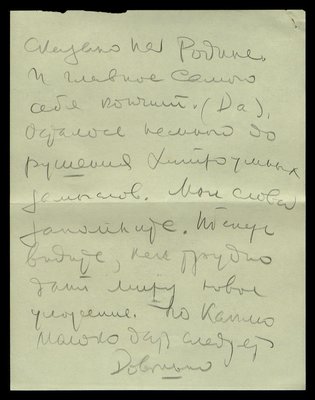 Сказано на Родине.
И главное самого
себя кончит. (Да),
Осталось немного до
рушения хитроумных
замыслов. Мои слова
запомните.
видите, как трудно
дать миру новое
учение. Но Камню
надо следует